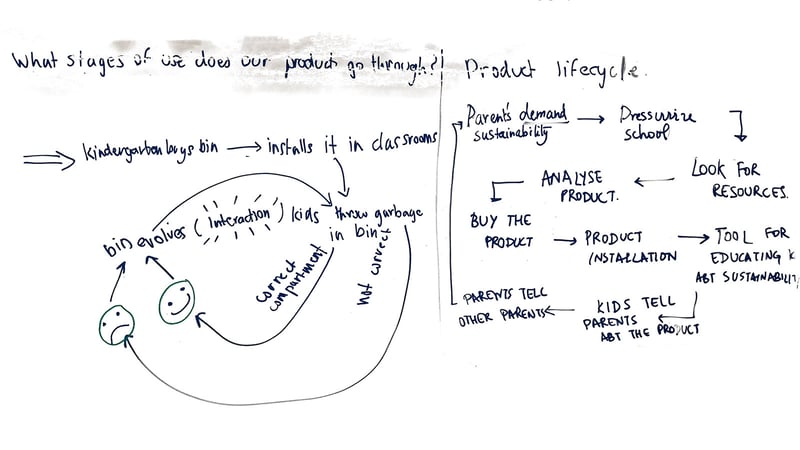 What stages of use does our product go through?!
kindergarten buys bin → installs it in classrooms
bin evolves (Interaction) kids throw garbage
in bin
correct
compartment
not correct
Product lifecycle.
Parent's demand
sustainability
→ Pressurize
school
LOOK FOR
RESOURCES.
ANALYSE
PRODUCT.
BUY THE
PRODUCT
→ PRODUCT
INSTALLATION
→ TOOL FOR
EDUCATING K
ABT SUSTAINABILIT
KIDS TELL
PARENTS
ABT THE PRODUCT
PARENTS TELL
OTHER PARENTS